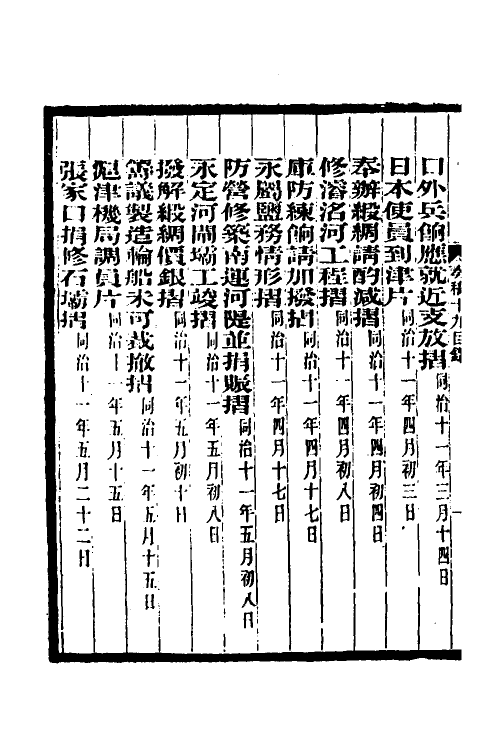 口外兵餉應就近支放摺同治十一年三月十四日
日本使員到津片同治十一年四月初三日
奉辦緞綢請酌減摺同治十一年四月初四日
修濬洺河工程摺同治十一年四月初八日
庫防練餉請加撥摺同治十一年四月十七日
永屬鹽務情形摺同治十一年四月十七日
防營修築南運河隄並捐賑摺同治十一年五月初八日
永定河閘壩工竣摺同治十一年五月初八日
撥解緞綢價銀摺同治十一年五月初十日
籌議製造輪船未可裁撤摺同治十一年五月十五日
滬津機局調員片同治十一年五月十五日
張家口捐修石壩摺同治十一年五月二十二日